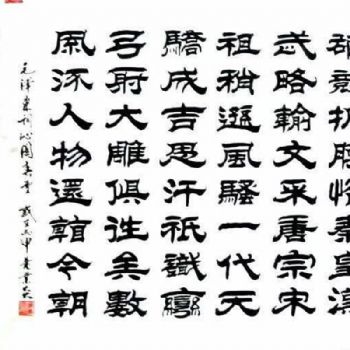 雄競折腰惜秦皇漢
武略輸文采唐宗宋
祖稍遜風騷一代天
驕成吉思汗祇識彎
弓射大雕俱往矣數
風流人物還看今朝
毛澤東詞沁園春雪